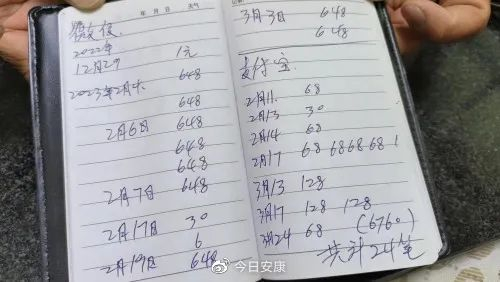 年 月 日 天气
微信
2022年
12月29 1元
2023年2月 648
648
2月6日 648
648
648
2月7日 648
2月17日 30
6
2月19日 648
3月3日 648
648
支付宝
2月11. 68
2月13 30
2月14 68
2月17 68 68 68 68 1
3月13 128
3月17 128 128
3月24 68 (6760)
共计24笔
@今日安康